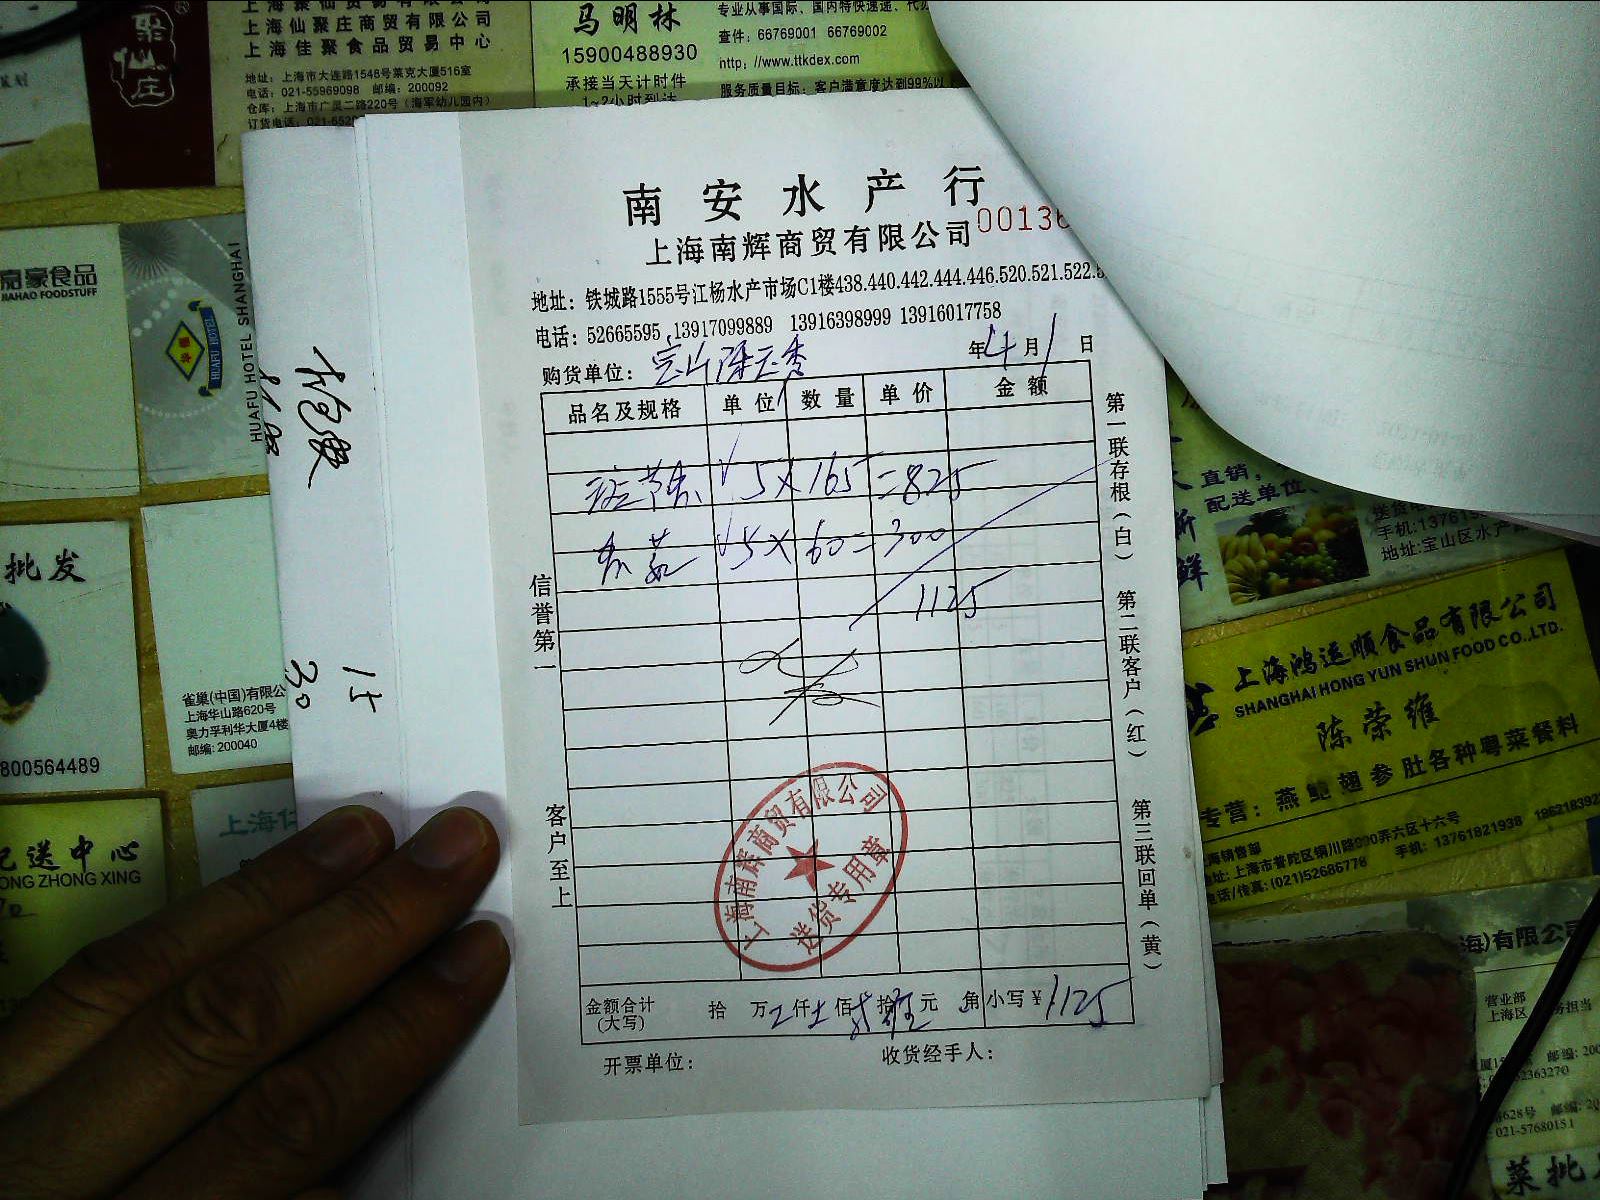 上海仙聚庄商贸有限公司
上海佳聚食品贸易中心
地址：上海市大连路1548号莱克大厦516室
电话：021-55969098 邮编：200092
仓库：上海市广灵二路220号（海军幼儿园内）
聚仙庄
马明林
15900488930
承接当天计时件
1~2小时到达
专业从事国际、国内特快速递、代
查件：66769001 66769002
http://www.ttkdex.com
服务质量目标：客户满意度达到99%以
南安水产行
上海南辉商贸有限公司
0013
地址：铁城路1555号江杨水产市场C1楼438.440.442.444.446.520.521.522.
电话：52665595 13917099889 13916398999 13916017758
购货单位：宝山陈玉香 年4月1日
品名及规格 单位 数量 单价 金额
斑节虾 √5×165=825
√5×60=300
1125
信誉第一
客户至上
第一联存根（白） 第二联客户（红） 第三联回单（黄）
上海南辉商贸有限公司
送货专用章
金额合计 拾 万 仟 佰 拾 元 角 小写￥1125
（大写）
开票单位： 收货经手人：
15
30
嘉豪食品
JIAHAO FOODSTUFF
HUAFU HOTEL SHANGHAI
HUAFU HOTEL
批发
800564489
雀巢(中国)有限公
上海华山路620号
奥力孚利华大厦4楼
邮编：200040
送中心
ONG ZHONG XING
直销，
配送单位、
新
鲜
手机:13761
地址:宝山区水产
上海鸿运顺食品有限公司
SHANGHAI HONG YUN SHUN FOOD CO.,LTD.
陈荣维
专营：燕鲍翅参肚各种粤菜餐料
地址：上海市普陀区铜川路890弄六区十六号
电话/传真：(021)52686778 手机：13761821938
海)有限公司
营业部
上海区
021-57680151
菜批